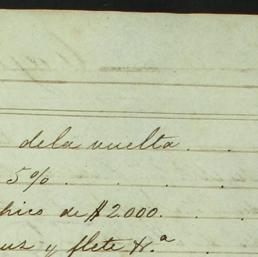 dela vuelta . .
5% . . . .
de $2000. . .
y flete &.ª